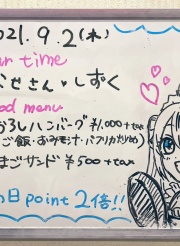 2021.9.2(木)
ur time
むせさん・しずく
od menu
おろしハンバーグ ¥1,000+tax
ご飯・おみそ汁・パフリカ炒め)
まごサンド ¥500+tax
の日 point 2倍!!